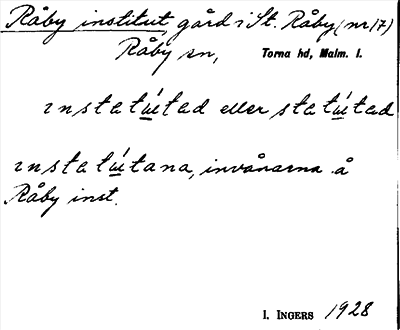 Råby institut, gård i St. Råby (nr 17)
Råby sn, Torna hd, Malm. l.
ınstatútad eller statútad
ınstatútana, invånarna å
Råby inst.
I. INGERS 1928